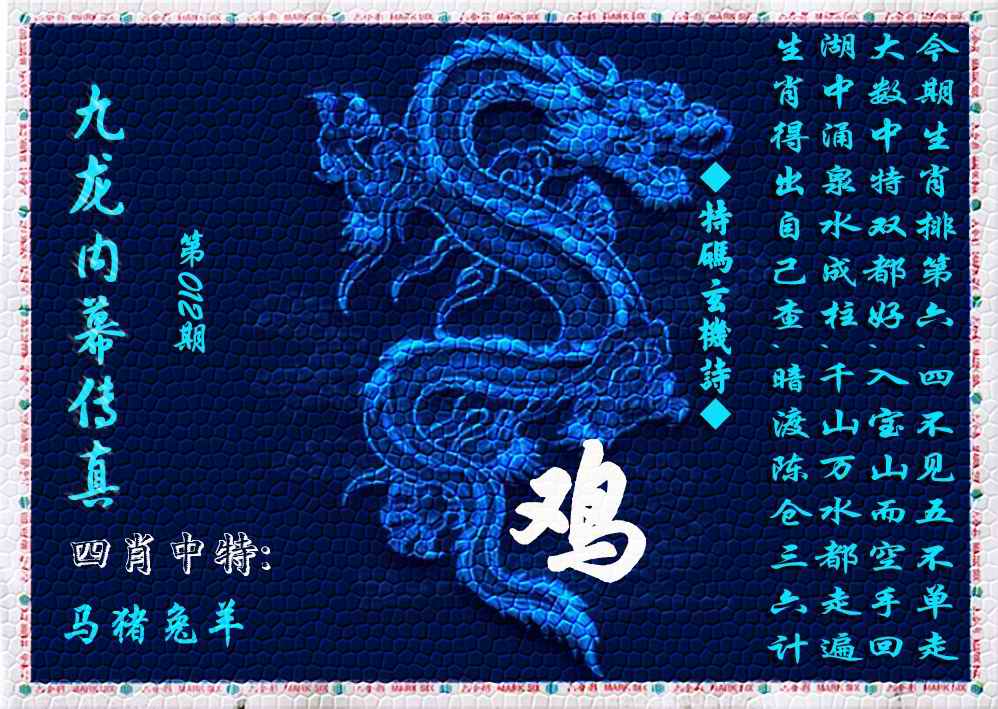 今期生肖排第六、四不见五不单走
大数中特双都好、入宝山而空手回
湖中涌泉水成柱、千山万水都走遍
生肖得出自己查、暗渡陈仓三六计
◆特碼玄機詩◆
九龙内幕传真
第012期
鸡
四肖中特:
马猪兔羊
六合彩 MARK SIX